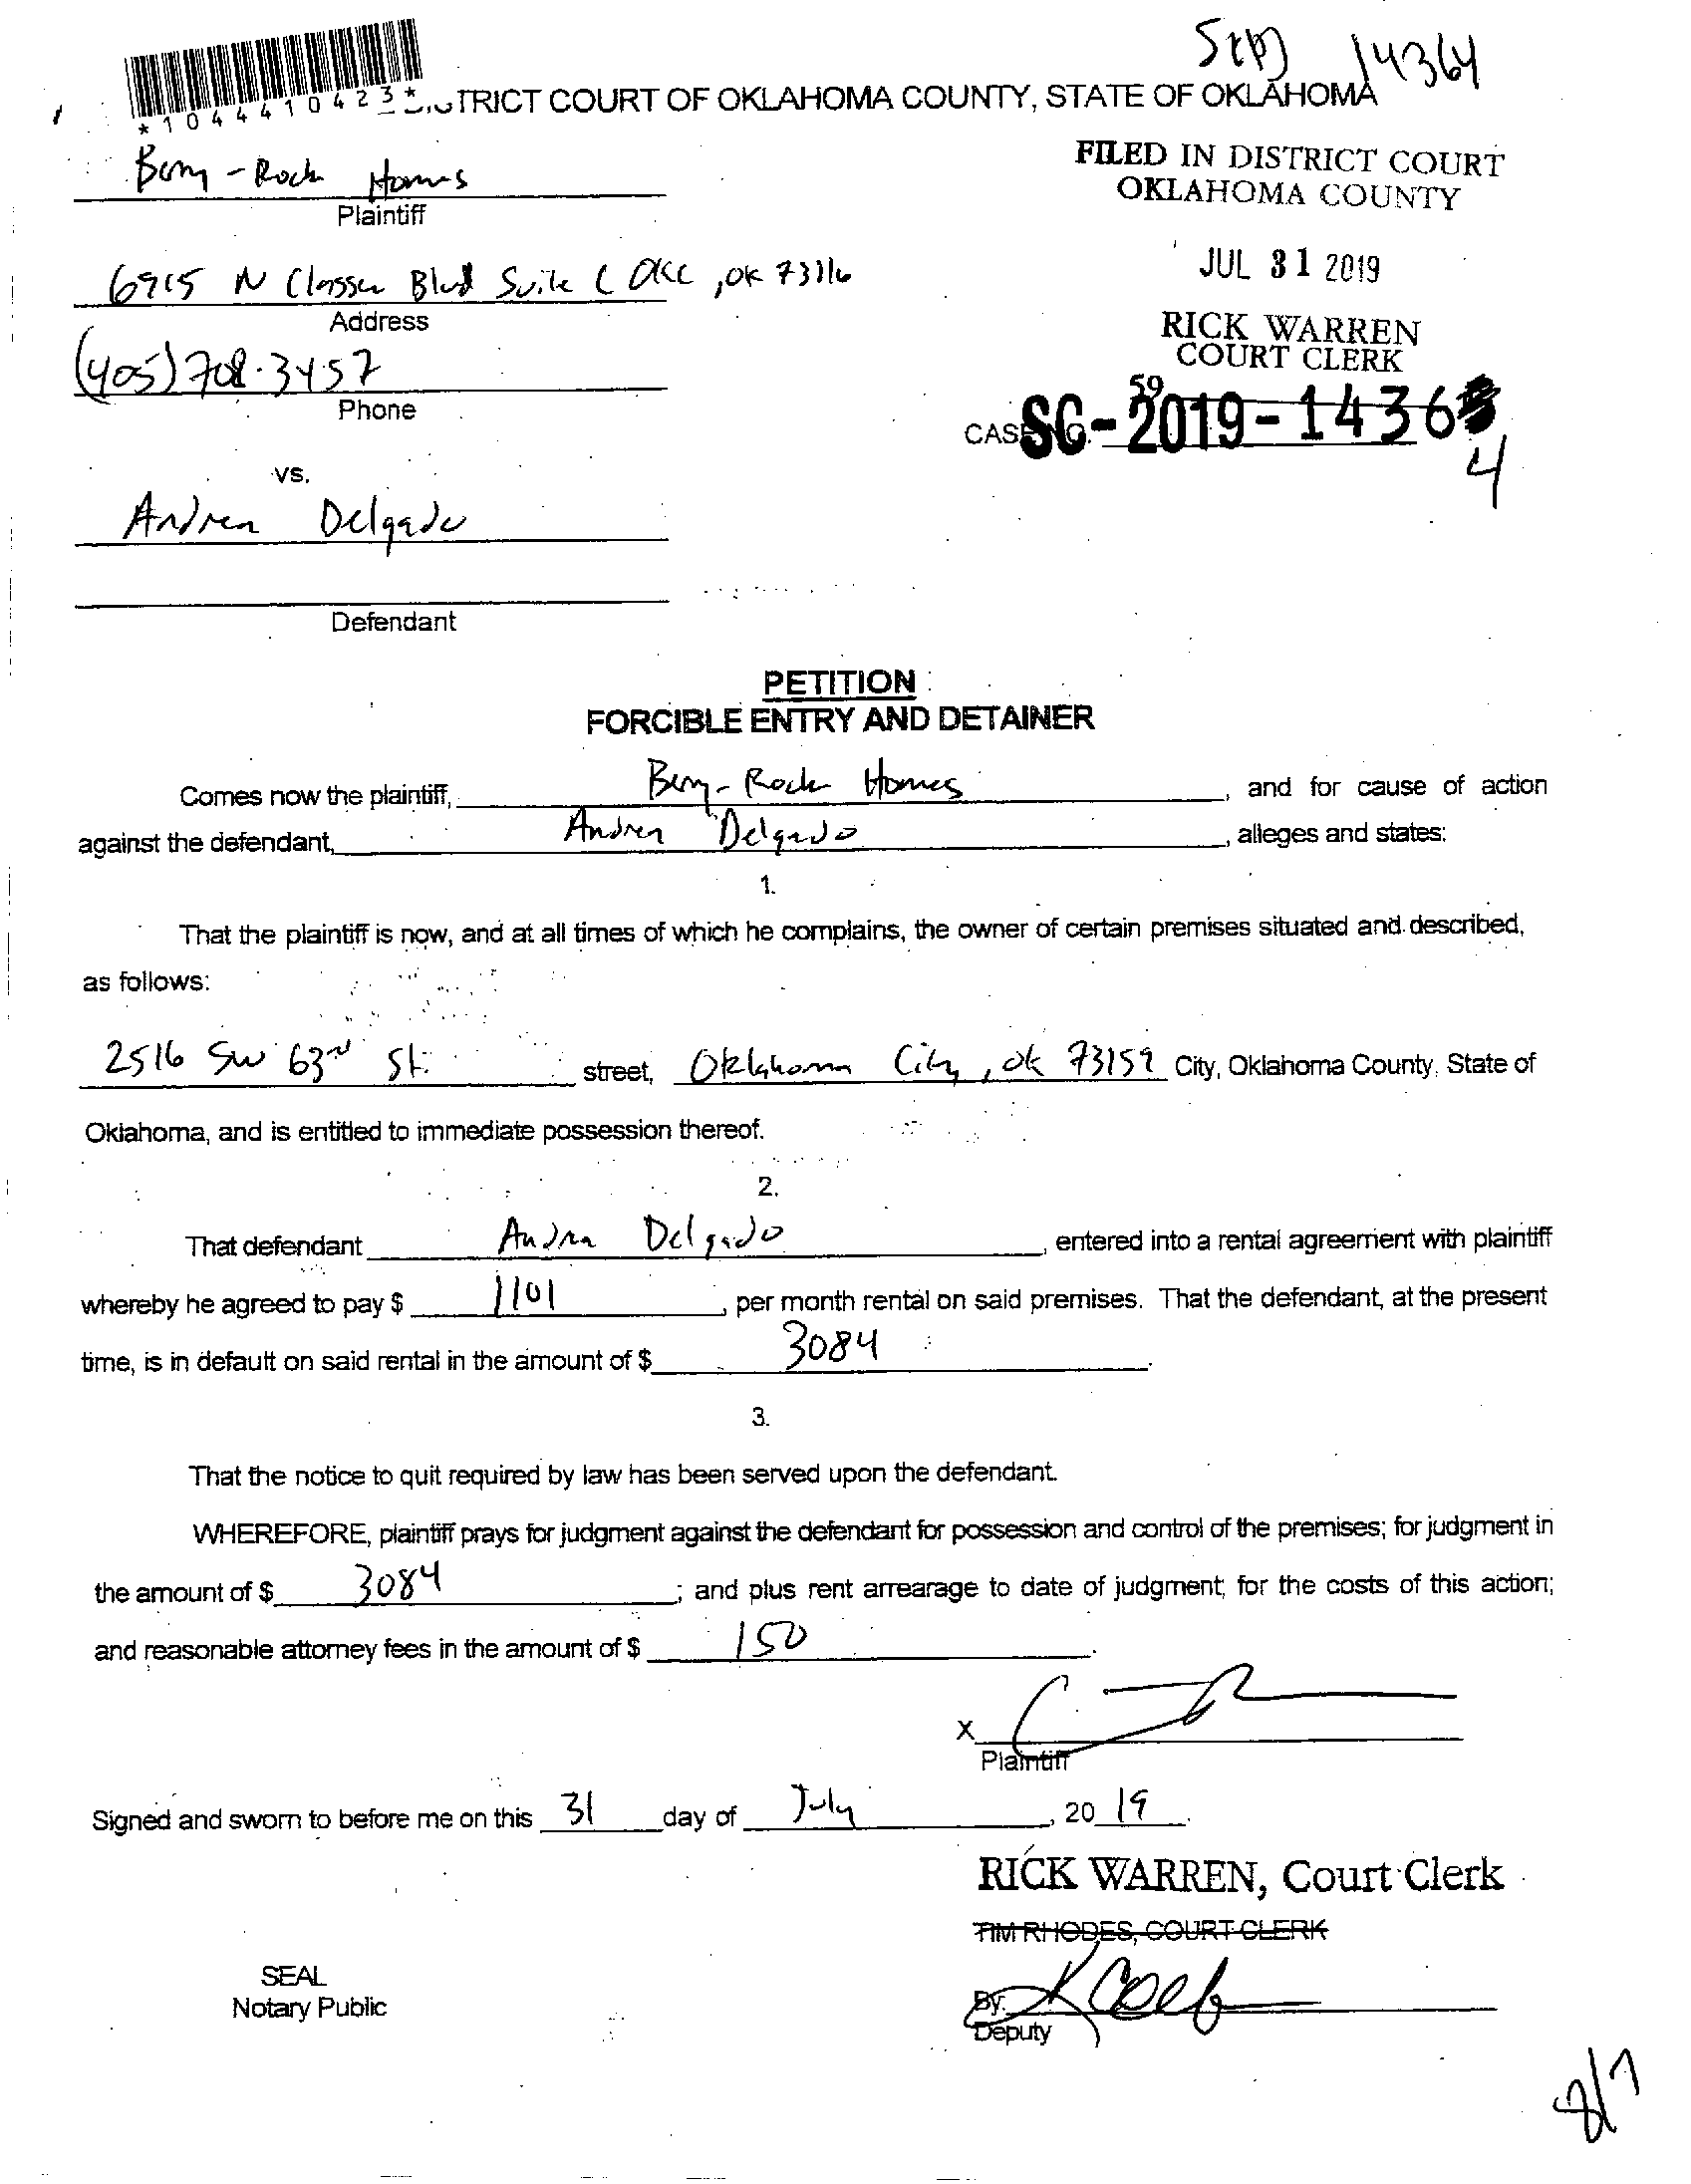 14364
*1044410423*
DISTRICT COURT OF OKLAHOMA COUNTY, STATE OF OKLAHOMA
Berry-Rock Homes
Plaintiff
FILED IN DISTRICT COURT
OKLAHOMA COUNTY
JUL 31 2019
RICK WARREN
COURT CLERK
59
6915 N Classen Blvd Suite C OKC, OK 73116
Address
(405) 708-3457
Phone
CASE NO. SC-2019-1436
4
vs.
Andrea Delgado
Defendant
PETITION
FORCIBLE ENTRY AND DETAINER
Comes now the plaintiff, Berry-Rock Homes, and for cause of action
against the defendant, Andrea Delgado, alleges and states:
1.
That the plaintiff is now, and at all times of which he complains, the owner of certain premises situated and described,
as follows:
2516 SW 63rd St. street, Oklahoma City, OK 73159 City, Oklahoma County, State of
Oklahoma, and is entitled to immediate possession thereof.
2.
That defendant Andrea Delgado, entered into a rental agreement with plaintiff
whereby he agreed to pay $ 1101, per month rental on said premises. That the defendant, at the present
time, is in default on said rental in the amount of $ 3084.
3.
That the notice to quit required by law has been served upon the defendant.
WHEREFORE, plaintiff prays for judgment against the defendant for possession and control of the premises; for judgment in
the amount of $ 3084; and plus rent arrearage to date of judgment; for the costs of this action;
and reasonable attorney fees in the amount of $ 150.
X
Plaintiff
Signed and sworn to before me on this 31 day of July, 2019.
RICK WARREN, Court Clerk
TIM RHODES, COURT CLERK
SEAL
Notary Public
By:
Deputy
8/7